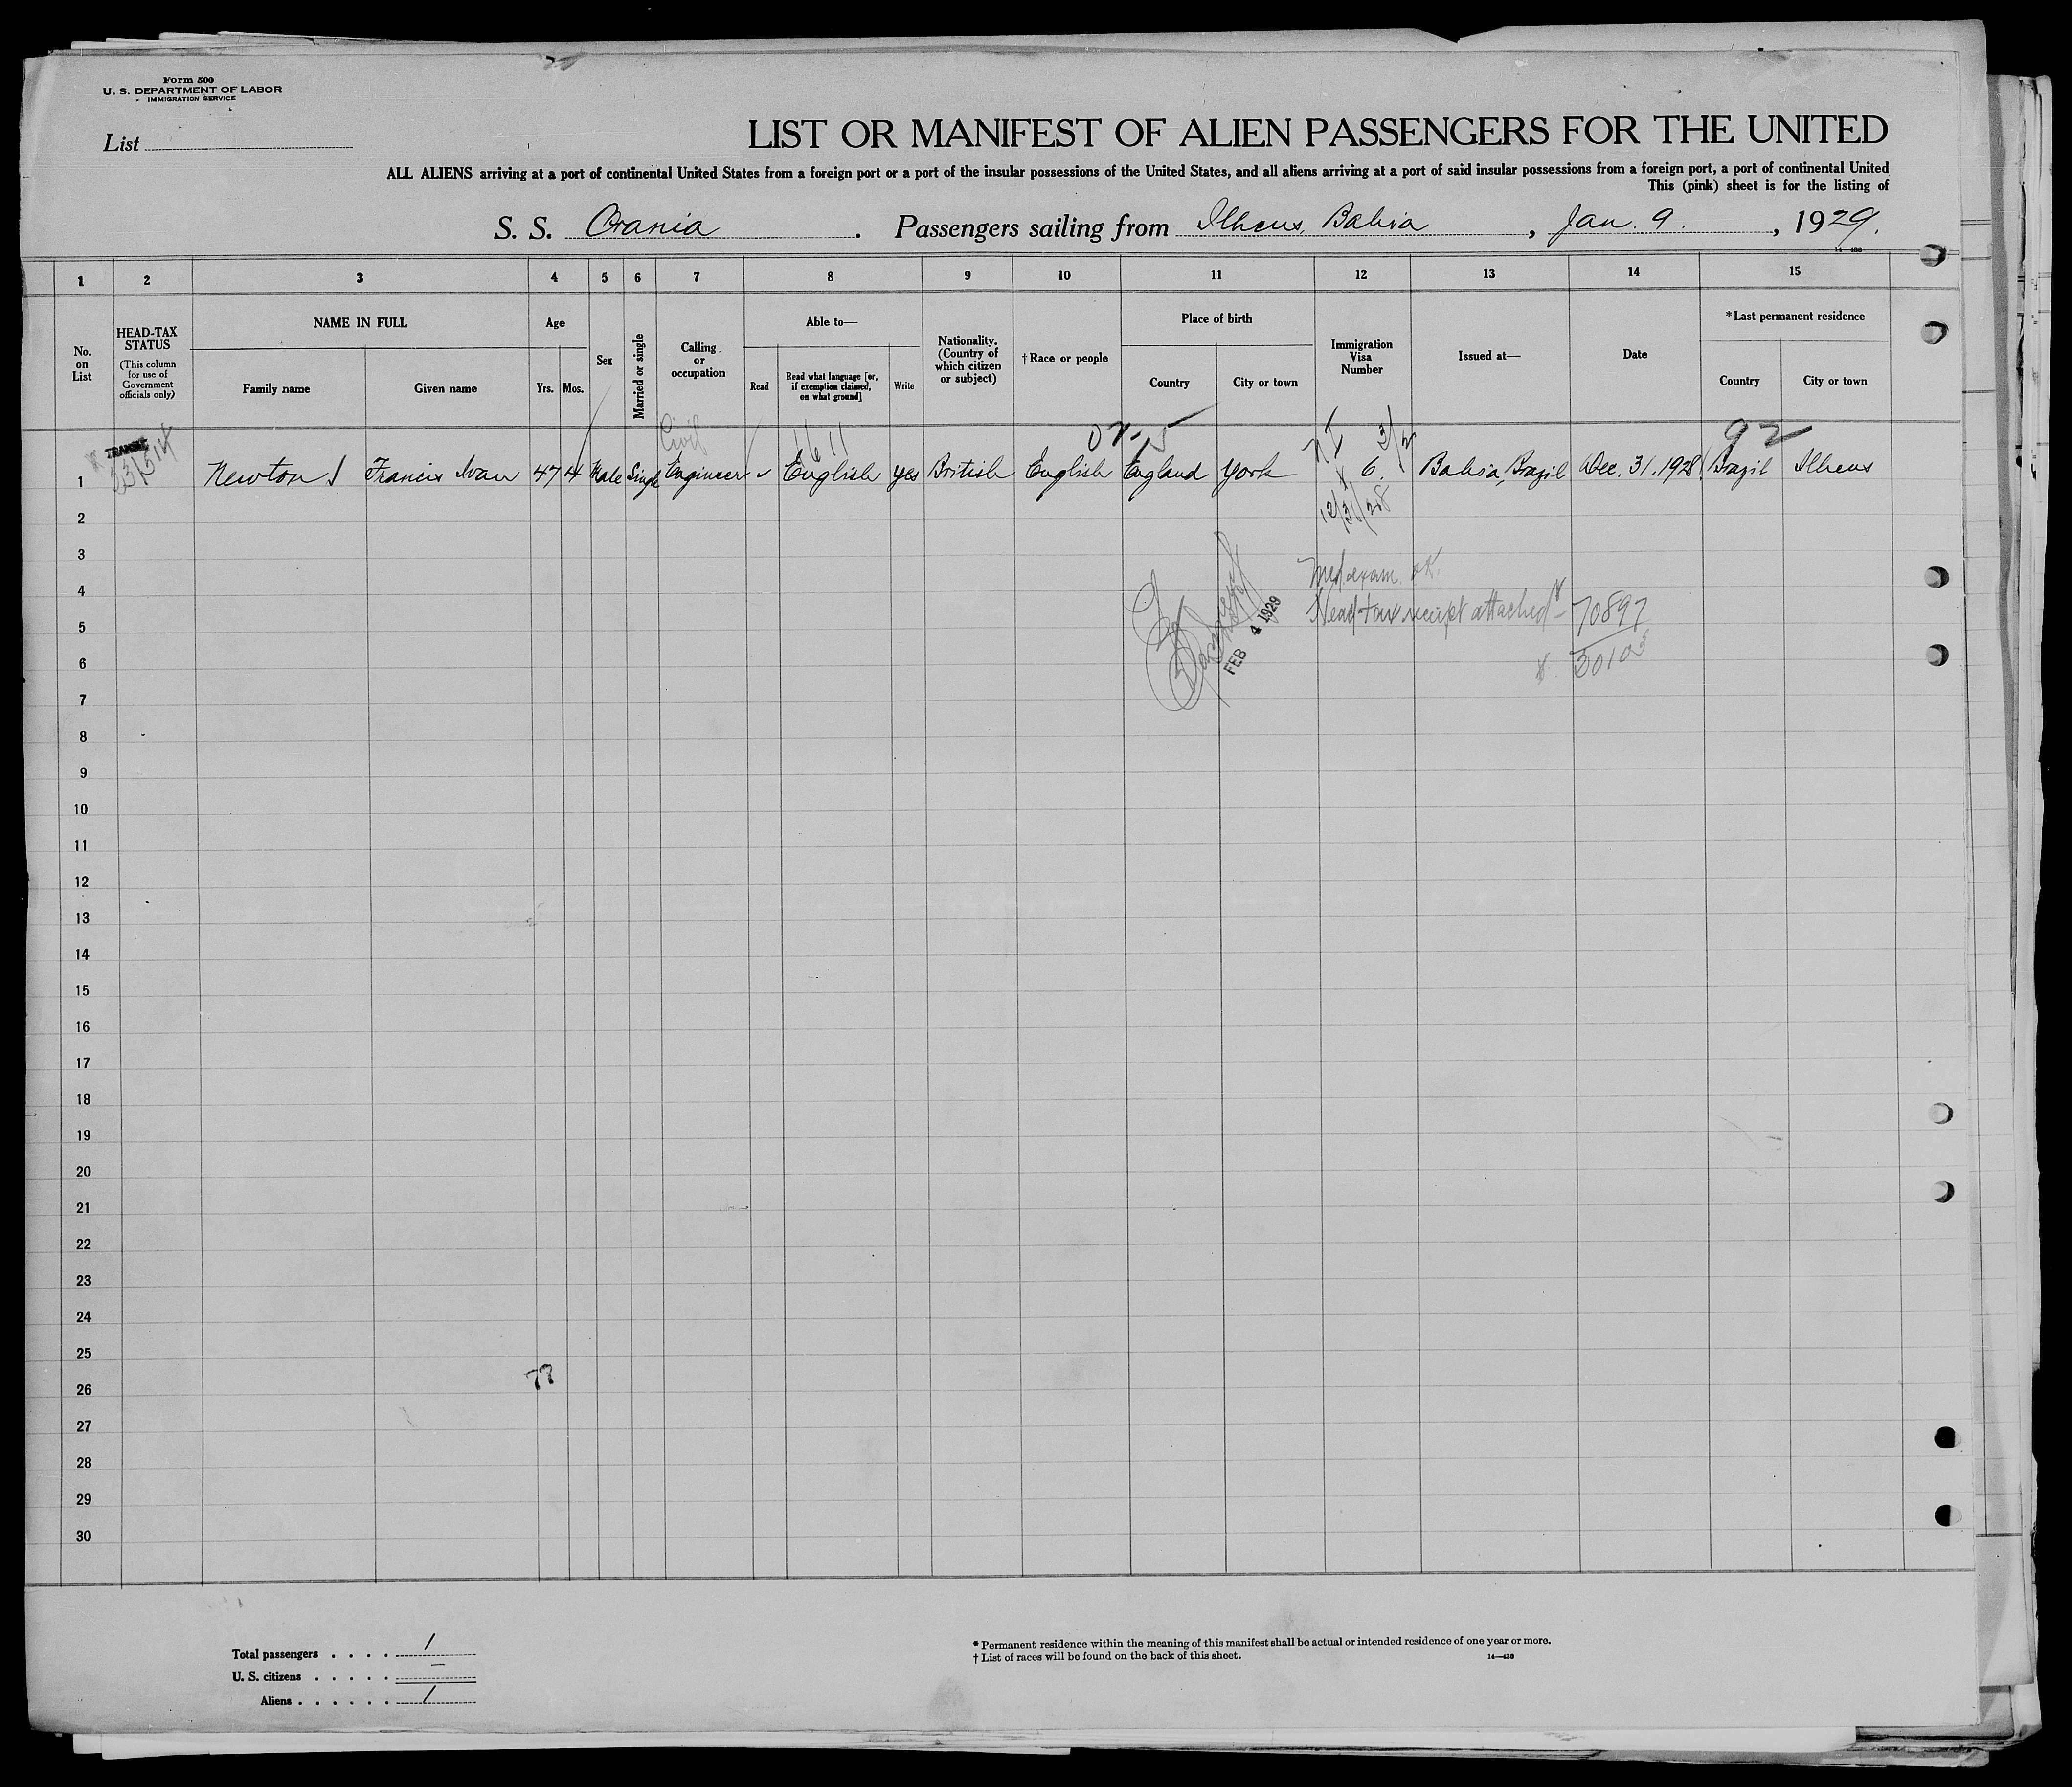 Form 500
U. S. DEPARTMENT OF LABOR
IMMIGRATION SERVICE
List
LIST OR MANIFEST OF ALIEN PASSENGERS FOR THE UNITED
ALL ALIENS arriving at a port of continental United States from a foreign port or a port of the insular possessions of the United States, and all aliens arriving at a port of said insular possessions from a foreign port, a port of continental United
This (pink) sheet is for the listing of
S. S. Crania . Passengers sailing from Ilheus, Bahia , Jan. 9. , 1929.
14—430
1 2 3 4 5 6 7 8 9 10 11 12 13 14 15
No. on List
HEAD-TAX STATUS
(This column for use of Government officials only)
NAME IN FULL
Family name Given name
Age
Yrs. Mos.
Sex
Married or single
Calling or occupation
Able to—
Read
Read what language [or, if exemption claimed, on what ground]
Write
Nationality. (Country of which citizen or subject)
†Race or people
Place of birth
Country City or town
Immigration Visa Number
Issued at—
Date
*Last permanent residence
Country City or town
TRANSIT
Civil
92
1 Newton Francis Ivan 47 4 Male Single Engineer English yes British English England York 6. Bahia, Brazil Dec. 31. 1928. Brazil Ilheus
12/31/28
2
3
Med exam ok.
4
Head tax receipt attached - 70897
FEB 4 1929
5
6
30103
7
8
9
10
11
12
13
14
15
16
17
18
19
20
21
22
23
24
25
77
26
27
28
29
30
Total passengers . . . . 1
U. S. citizens . . . . . —
Aliens . . . . . . 1
* Permanent residence within the meaning of this manifest shall be actual or intended residence of one year or more.
† List of races will be found on the back of this sheet.
14—430